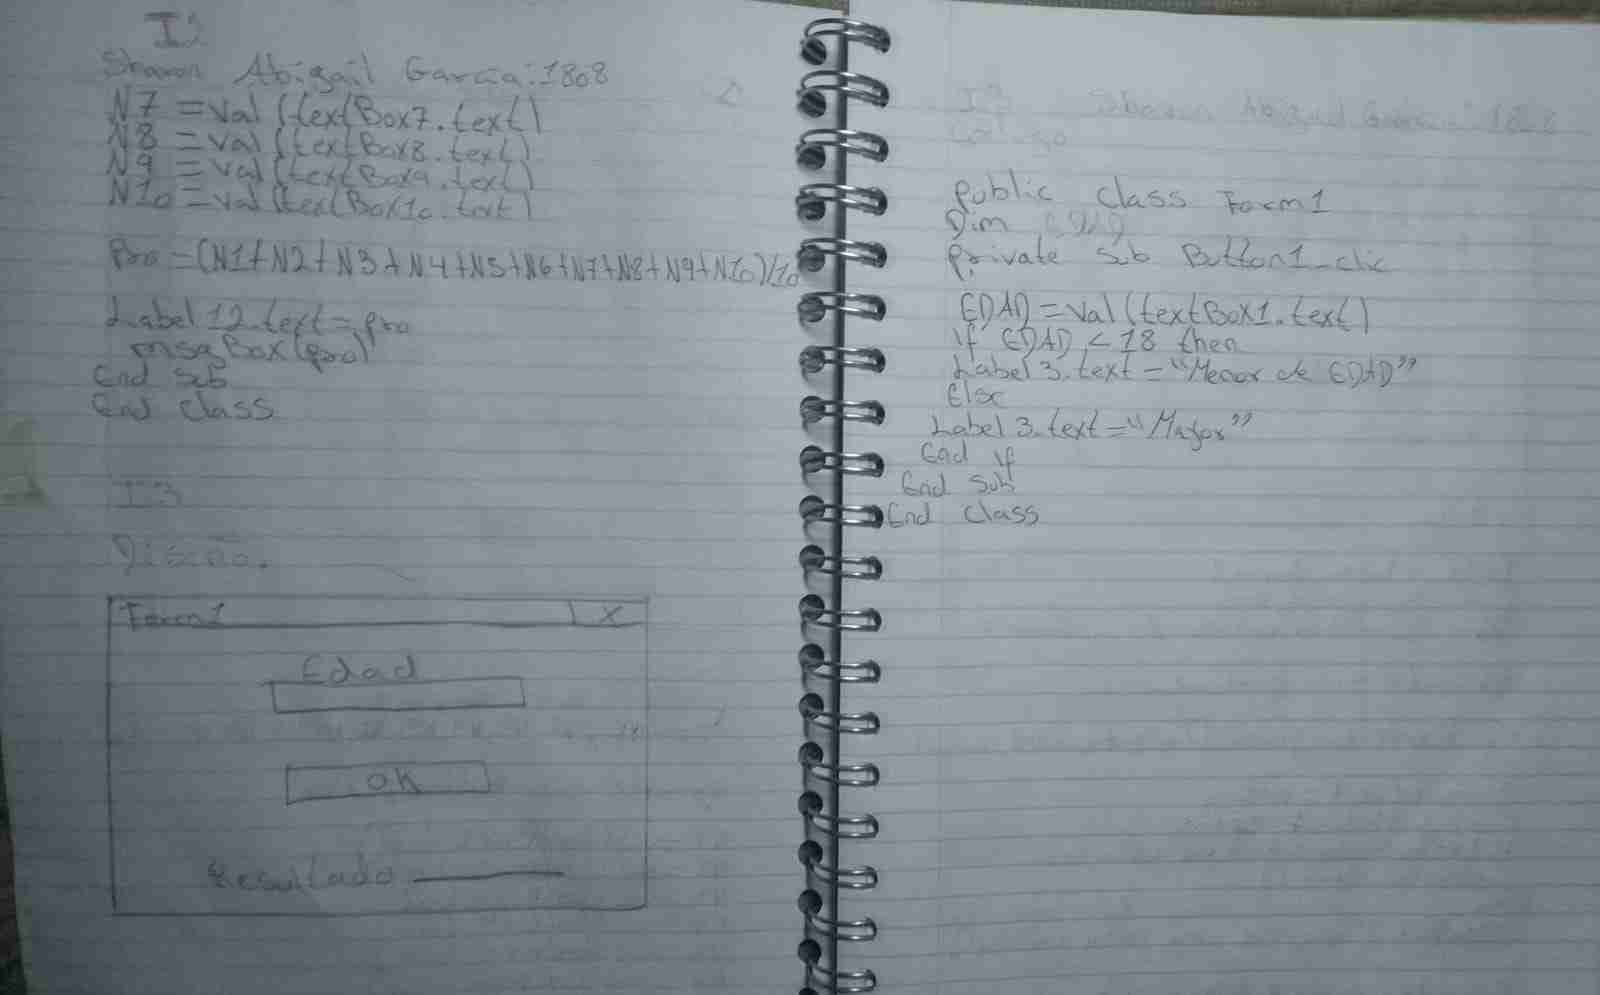 I2
Sharon Abigail Garcia:1808
N7 = Val (textBox7.text)
N8 = val (textBox8.text)
N9 = val (textBox9.text)
N10 = val (textBox10.text)
Pro = (N1+N2+N3+N4+N5+N6+N7+N8+N9+N10)/10
Label 12.text = pro
msgBox(pro)
End sub
End class
I3
Diseño.
Form1 X
Edad
OK
Resultado
I3 Sharon Abigail Garcia: 1808
public class Form1
Dim
private sub Button1_clic
EDAD = Val (textBox1.text)
if EDAD < 18 then
Label 3.text = "Menor de EDAD"
Else
Label 3.text = "Mayor"
End if
End sub
End class